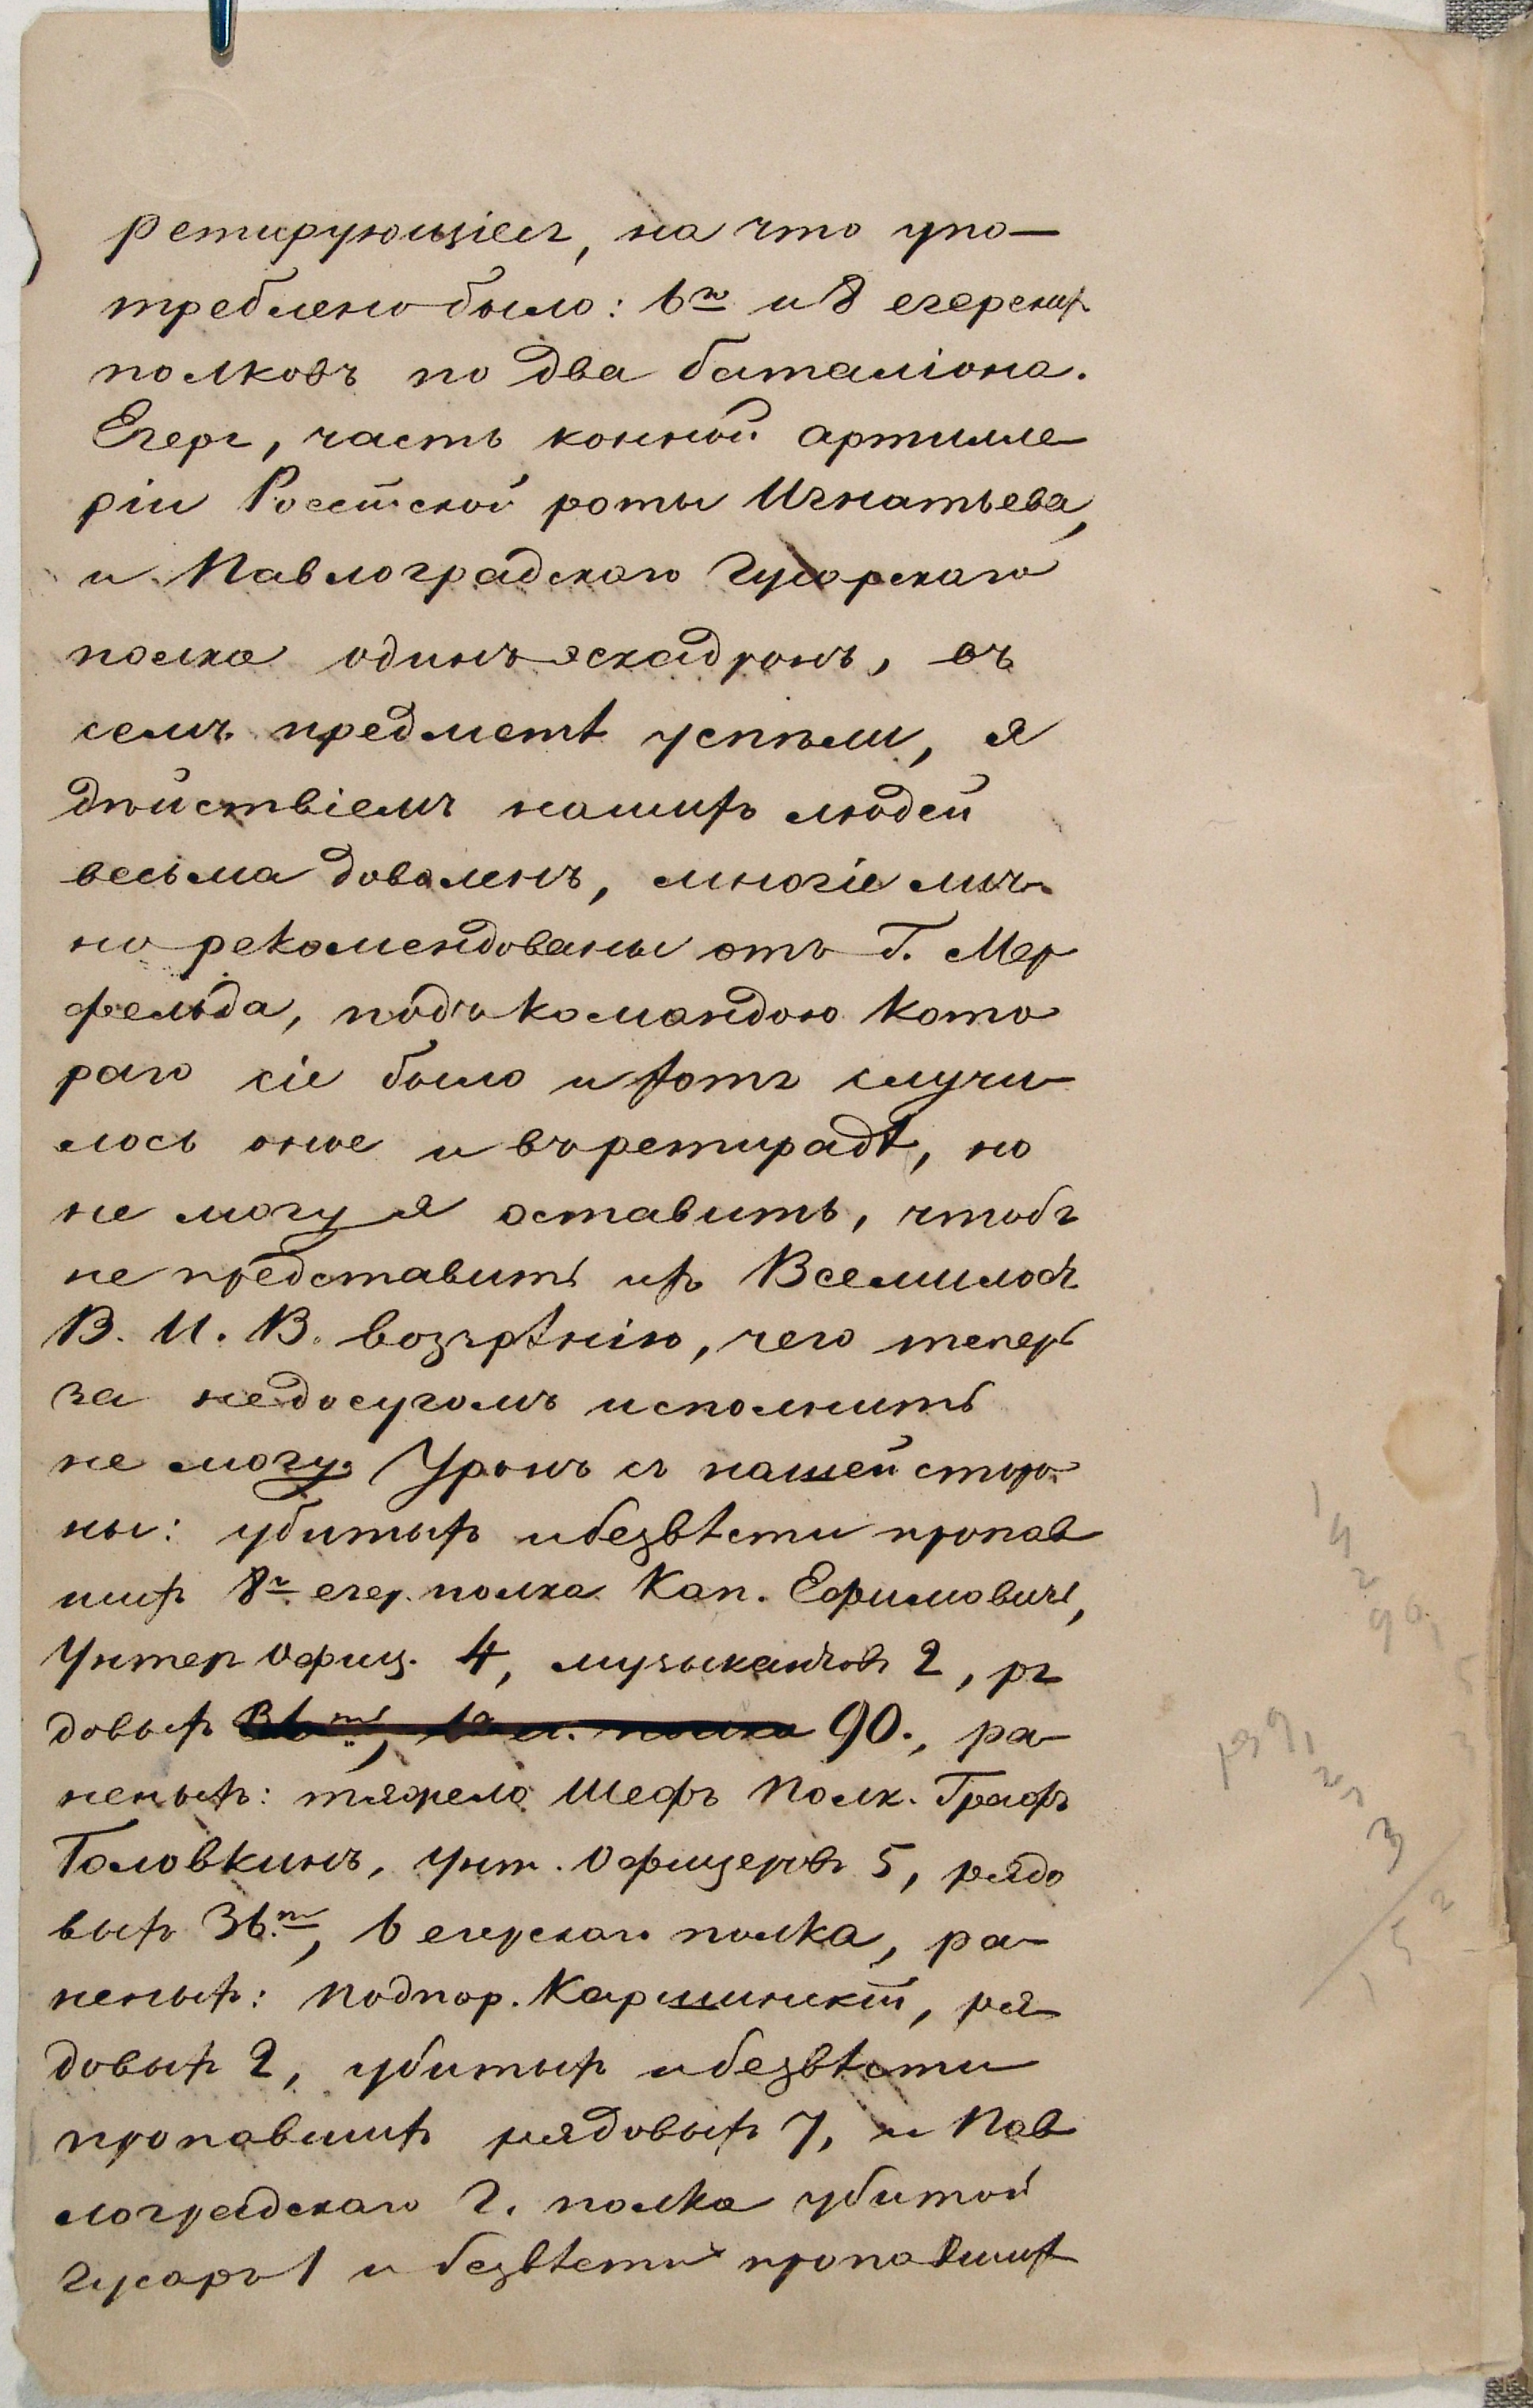 ретирующіеся, на что упо-
треблено было: 6го и 8 егерских
полковъ по два баталіона.
Егеря, часть конной артилле
ріи Россійской роты Игнатьева,
и Павлоградскаго Гусарскаго
полка одинъ эскадронъ, въ
семъ предметѣ успѣли, я
дѣйствіемъ нашихъ людей
весьма доволенъ, многіе лич-
но рекомендованы отъ Г. Мер
фельда, подъ командою кото
раго сіе было и хотя случи
лось оное и въ ретирадѣ, но
не могу я оставить, чтобъ
не представить ихъ Всемилост
В. И. В. воззрѣнію, чего теперь
за недосугомъ исполнить
не могу. Уронъ съ нашей сторо
ны: убитыхъ и безвѣсти пропав
шихъ 8го егер. полка Кап. Ефимовичъ,
Унтер офиц. 4, музыкантовъ 2, ря
довыхъ 90., ра-
неныхъ: тяжело Шефъ Полк. Графъ
Головкинъ, унт. офицеровъ 5, рядо
выхъ 36ть, 6 егерскаго полка, ра-
неныхъ: Подпор. Каршинскій, ря-
довыхъ 2, убитыхъ и безвѣсти
пропавшихъ рядовыхъ 7, и Пав
лоградскаго Г. полка убитой
гусаръ 1 и безвѣсти пропавшихъ